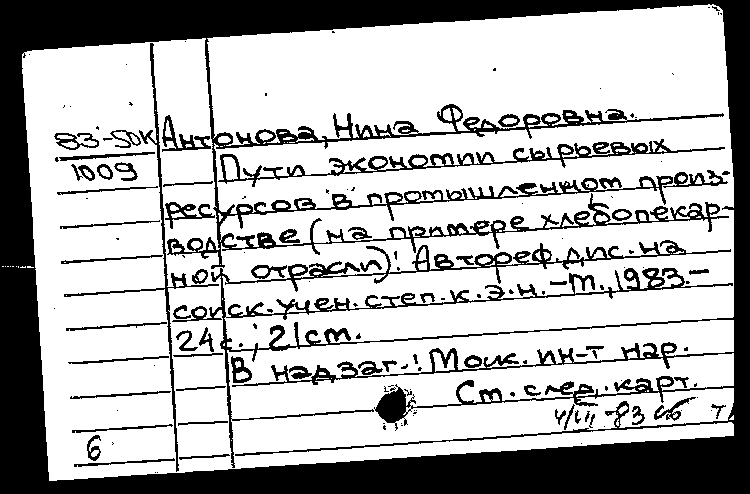 83-50К Антонова, Нина Федоровна.
1009 Пути экономии сырьевых
ресурсов в промышленном произ-
водстве (на примере хлебопекар-
ной отрасли): Автореф. дис. на
соиск. учен. степ. к.э.н. -М., 1983.-
24 с.; 21 см.
В надзаг.: Моск. ин-т нар.
См. след. карт.
6